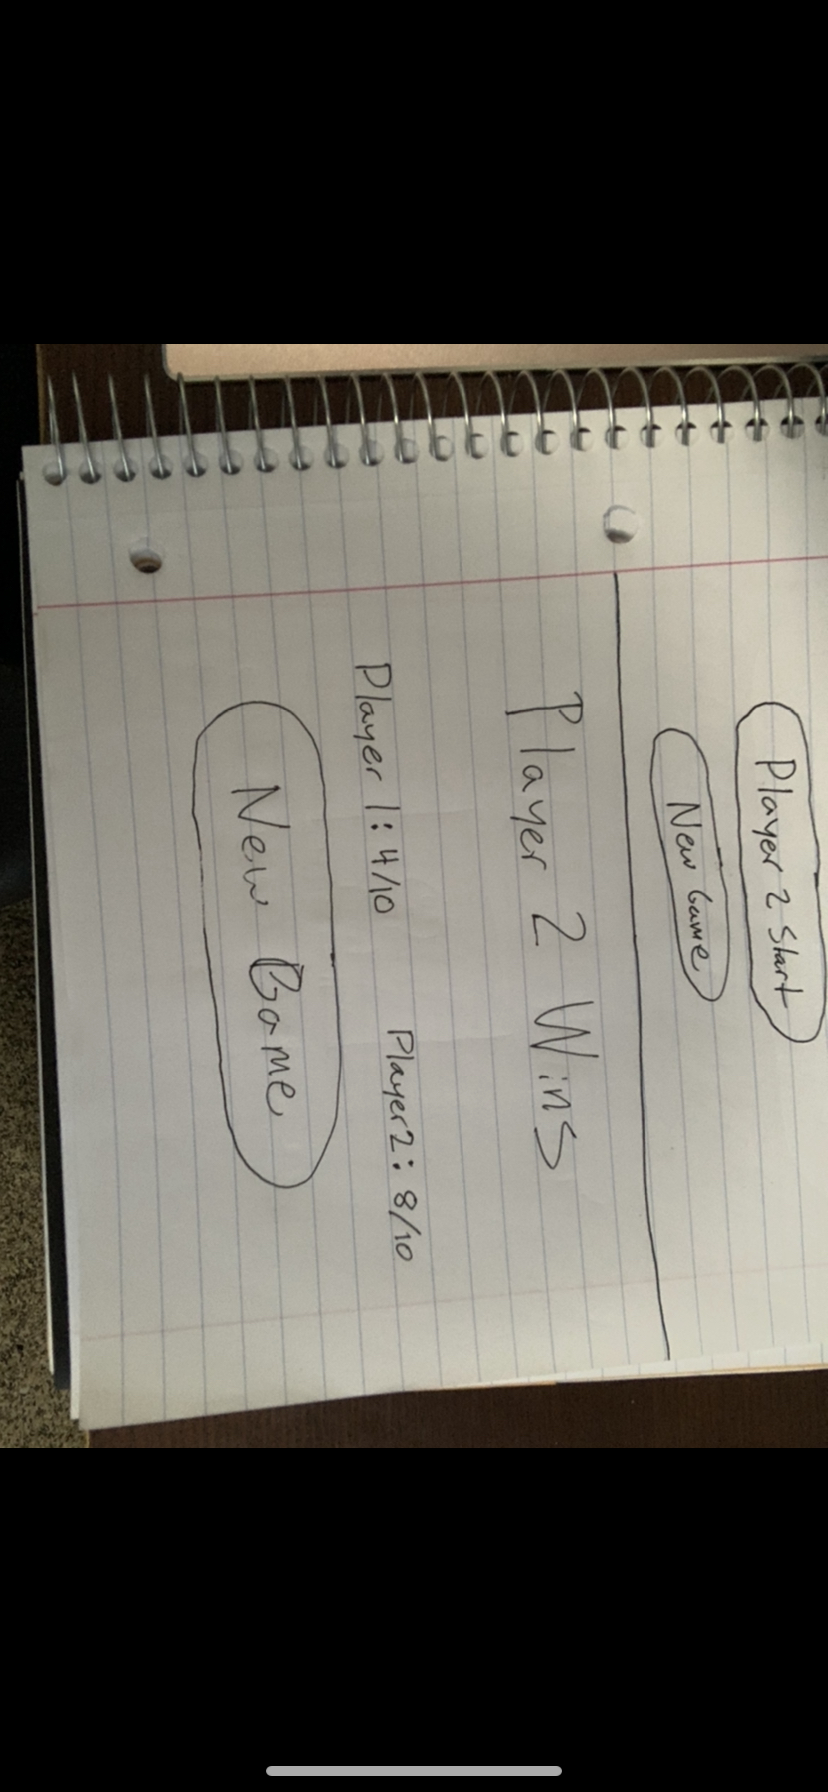 Player 2 Start
New Game
Player 2 Wins
Player 1: 4/10 Player 2: 8/10
New Game